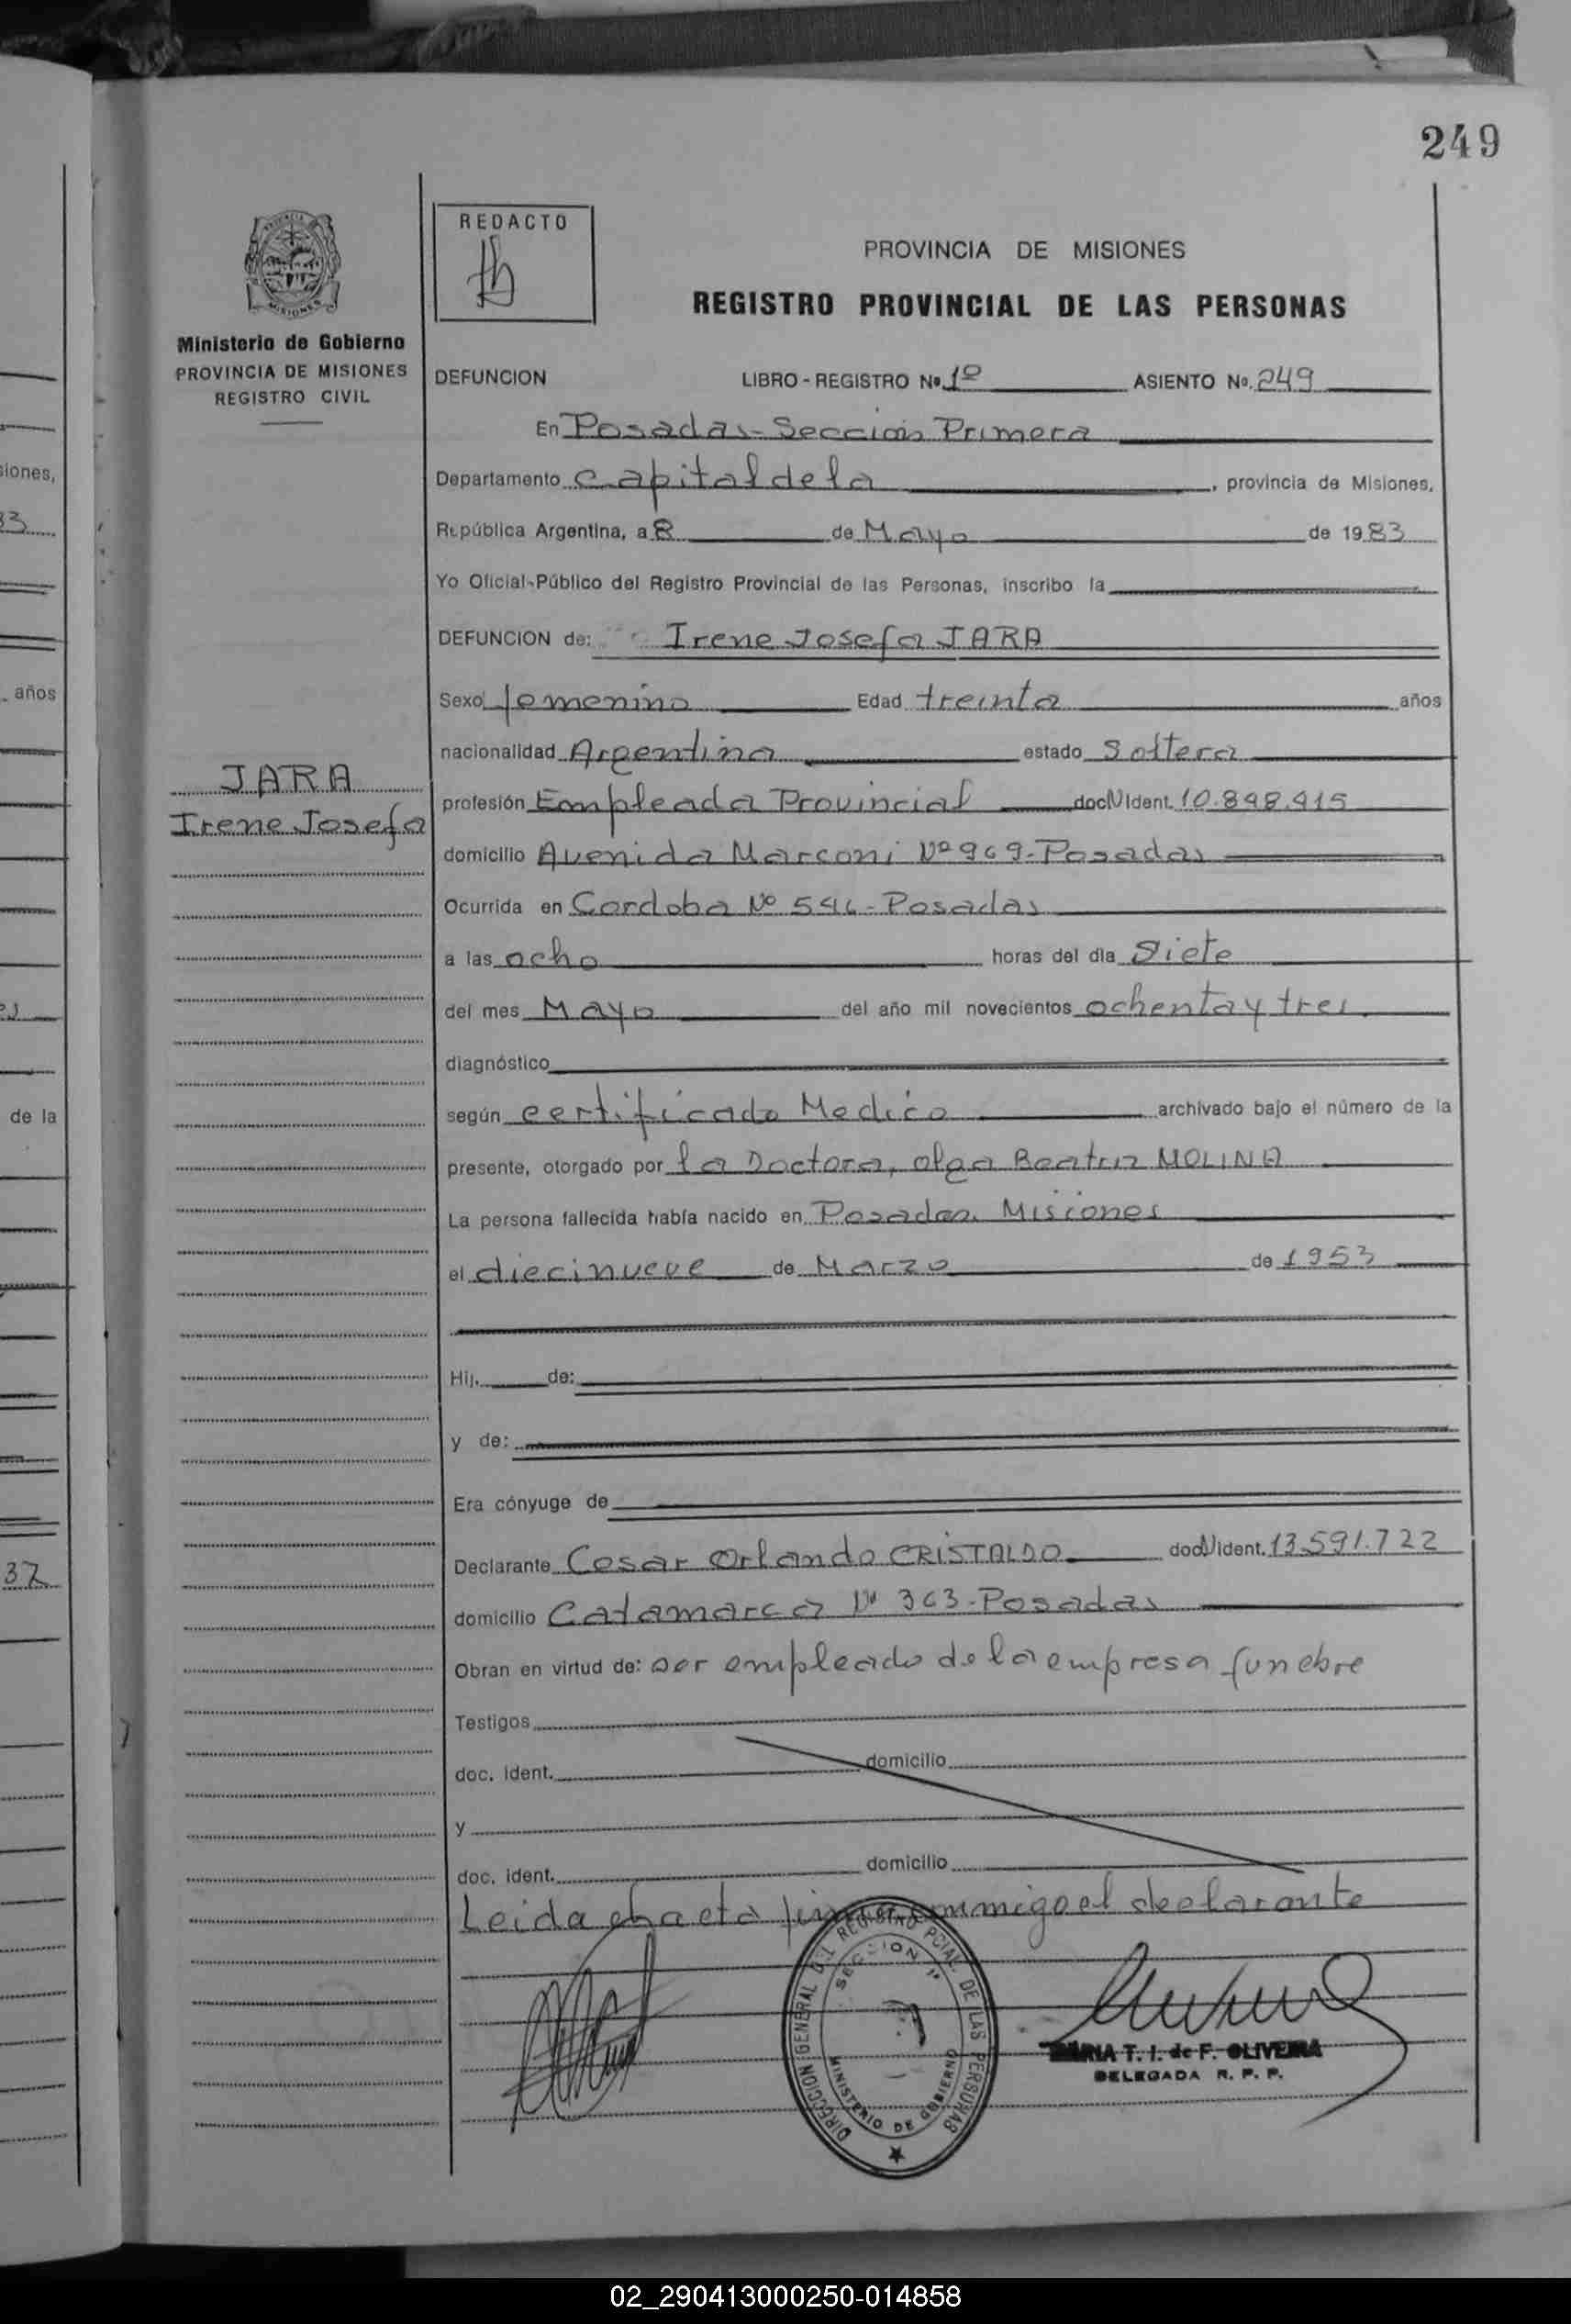 249
REDACTO
PROVINCIA DE MISIONES
REGISTRO PROVINCIAL DE LAS PERSONAS
Ministerio de Gobierno
PROVINCIA DE MISIONES
REGISTRO CIVIL
DEFUNCION LIBRO - REGISTRO No. 1º ASIENTO No. 249
En Posadas - Sección Primera
Departamento Capital de la, provincia de Misiones,
República Argentina, a 8 de Mayo de 1983
Yo Oficial-Público del Registro Provincial de las Personas, inscribo la
DEFUNCION de: Irene Josefa JARA
Sexo femenino Edad treinta años
nacionalidad Argentina estado Soltera
JARA
Irene Josefa
profesión Empleada Provincial doc. N ident. 10.898.915
domicilio Avenida Marconi Nº 969 - Posadas
Ocurrida en Cordoba Nº - Posadas
a las ocho horas del día Siete
del mes Mayo del año mil novecientos ochenta y tres.
diagnóstico
según certificado Medico archivado bajo el número de la
presente, otorgado por la Doctora, olga Beatriz MOLINA
La persona fallecida había nacido en Posadas. Misiones
el diecinueve de Marzo de 1953
Hij. de:
y de:
Era cónyuge de
Declarante Cesar Orlando CRISTALDO doc N ident. 13.591.722
domicilio Catamarca Nº 363 - Posadas
Obran en virtud de: ser empleado de la empresa funebre
Testigos
doc. ident. domicilio
y
doc. ident. domicilio
Leida el acta firma conmigo el declarante
DIRECCION GENERAL DEL REGISTRO PCIAL. DE LAS PERSONAS
SECCION 1ª
MINISTERIO DE GOBIERNO
T. I. de F. OLIVEIRA
DELEGADA R. P. P.
siones,
83
años
de la
37
02_290413000250-014858